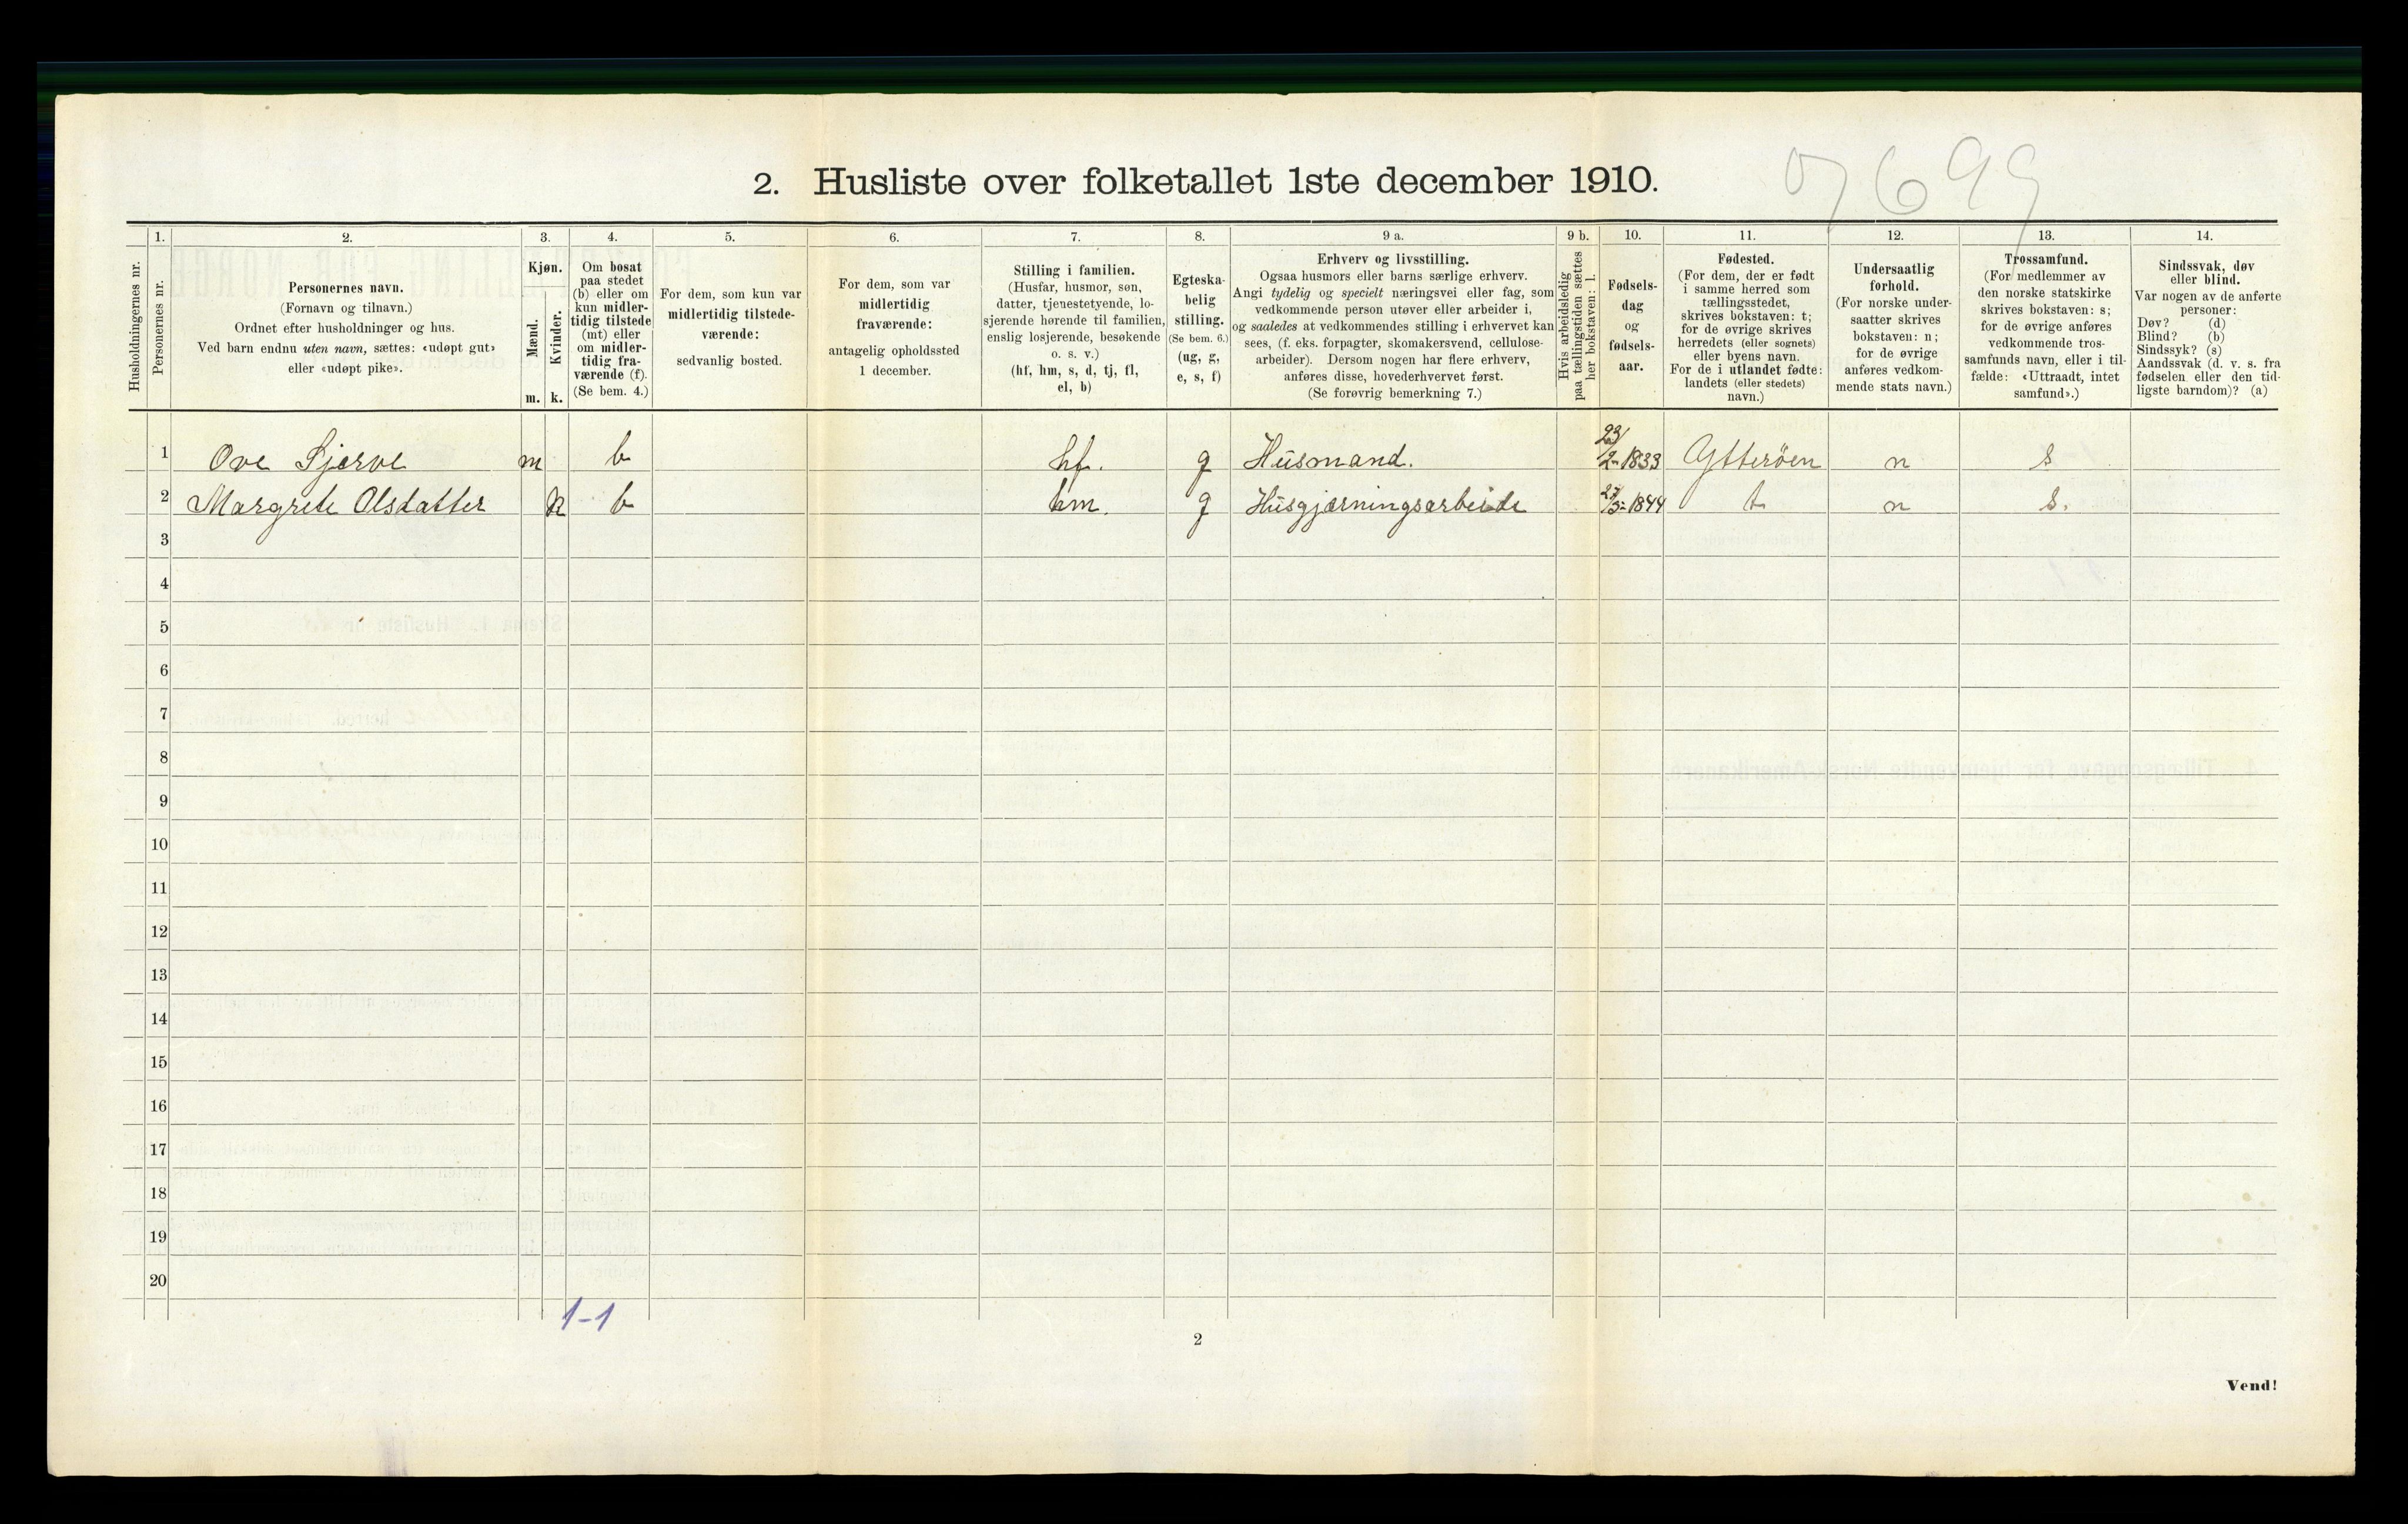 7699
2. Husliste over folketallet 1ste december 1910.
Husholdningernes nr.
1.
Personernes nr.
2.
Personernes navn.
(Fornavn og tilnavn.)
Ordnet efter husholdninger og hus.
Ved barn endnu uten navn, sættes: «udøpt gut»
eller «udøpt pike».
3.
Kjøn.
Mænd.
Kvinder.
m. k.
4.
Om bosat
paa stedet
(b) eller om
kun midler-
tidig tilstede
(mt) eller
om midler-
tidig fra-
værende (f).
(Se bem. 4.)
5.
For dem, som kun var
midlertidig tilstede-
værende:
sedvanlig bosted.
6.
For dem, som var
midlertidig
fraværende:
antagelig opholdssted
1 december.
7.
Stilling i familien.
(Husfar, husmor, søn,
datter, tjenestetyende, lo-
sjerende hørende til familien,
enslig losjerende, besøkende
o. s. v.)
(hf, hm, s, d, tj, fl,
el, b)
8.
Egteska-
belig
stilling.
(Se bem. 6.)
(ug, g,
e, s, f)
9 a.
Erhverv og livsstilling.
Ogsaa husmors eller barns særlige erhverv.
Angi tydelig og specielt næringsvei eller fag, som
vedkommende person utøver eller arbeider i,
og saaledes at vedkommendes stilling i erhvervet kan
sees, (f. eks. forpagter, skomakersvend, cellulose-
arbeider). Dersom nogen har flere erhverv,
anføres disse, hovederhvervet først.
(Se forøvrig bemerkning 7.)
9 b.
Hvis arbeidsledig
paa tællingstiden sættes
her bokstaven: l.
10.
Fødsels-
dag
og
fødsels-
aar.
11.
Fødested.
(For dem, der er født
i samme herred som
tællingsstedet,
skrives bokstaven: t;
for de øvrige skrives
herredets (eller sognets)
eller byens navn.
For de i utlandet fødte:
landets (eller stedets)
navn.)
12.
Undersaatlig
forhold.
(For norske under-
saatter skrives
bokstaven: n;
for de øvrige
anføres vedkom-
mende stats navn.)
13.
Trossamfund.
(For medlemmer av
den norske statskirke
skrives bokstaven: s;
for de øvrige anføres
vedkommende tros-
samfunds navn, eller i til-
fælde: «Uttraadt, intet
samfund».)
14.
Sindssvak, døv
eller blind.
Var nogen av de anførte
personer:
Døv? (d)
Blind? (b)
Sindssyk? (s)
Aandssvak (d. v. s. fra
fødselen eller den tid-
ligste barndom)? (a)
1 Ove Sjerve m b hf. g Husmand. 23/2-1833 Ytterøen n s
2 Margrete Olsdatter k b hm. g Husgjærningsarbeide 27/5-1844 t n s.
3
4
5
6
7
8
9
10
11
12
13
14
15
16
17
18
19
20
1-1
2
Vend!